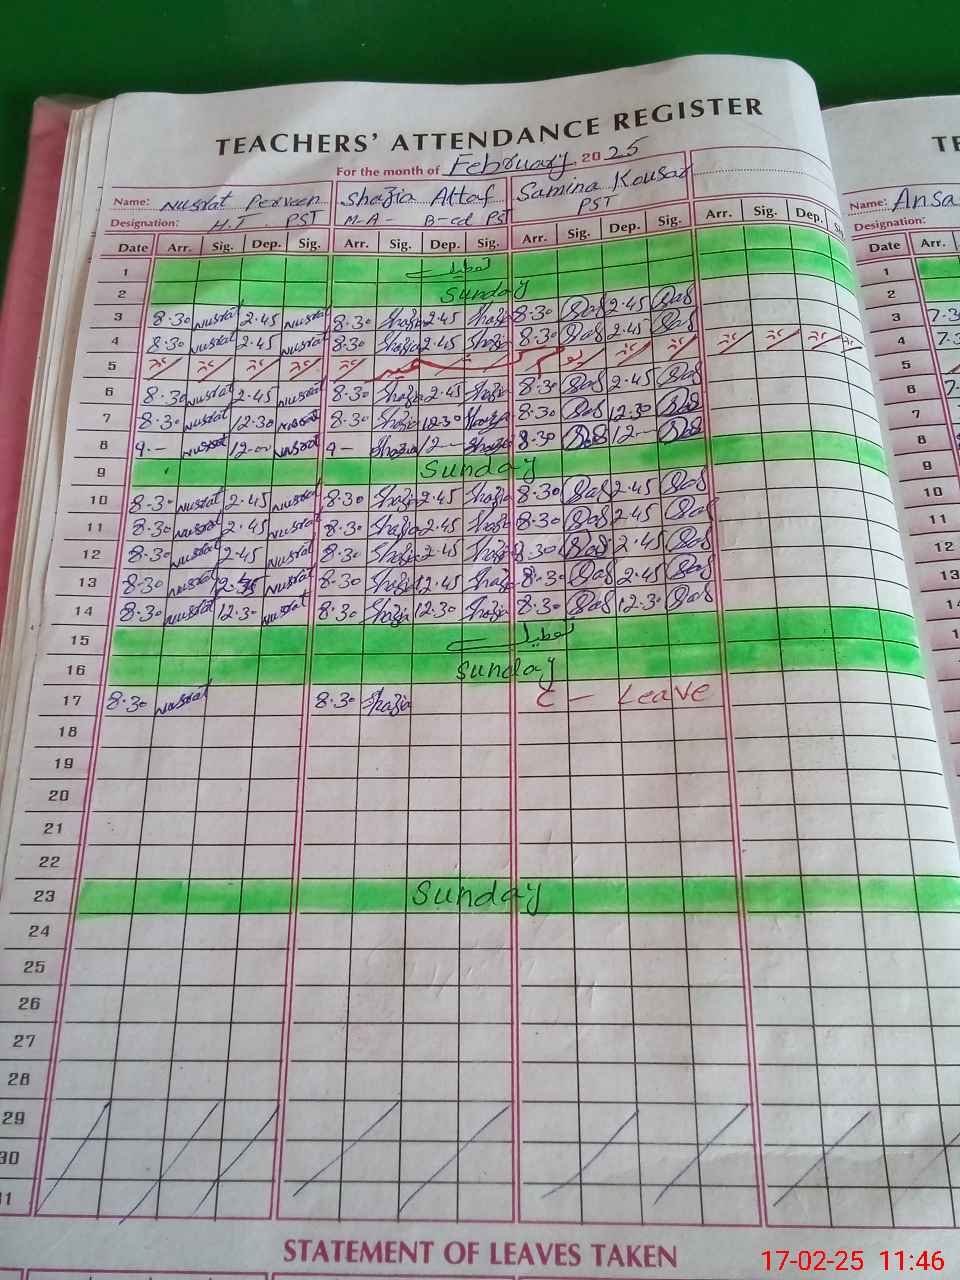 TEACHERS' ATTENDANCE REGISTER
For the month of February, 2025
Name: Nusrat Perveen Shazia Altaf Samina Kousar
Designation: H.T PST M-A- B-ed PST PST
Date Arr. Sig. Dep. Sig. Arr. Sig. Dep. Sig. Arr. Sig. Dep. Sig. Arr. Sig. Dep.
1 تعطیل
2 Sunday
3 8.30 Nusrat 2.45 Nusrat 8.30 Shazia 2.45 Shazia 8.30 2.45
4 8.30 Nusrat 2.45 Nusrat 8.30 Shazia 2.45 Shazia 8.30 2.45
5
6 8.30 Nusrat 2.45 Nusrat 8.30 Shazia 2.45 Shazia 8.30 2.45
7 8.30 Nusrat 12.30 Nusrat 8.30 Shazia 12.30 Shazia 8.30 12.30
8 9.- Nusrat 12- Nusrat 9- Shazia 12- Shazia 8.30 12-
9 Sunday
10 8.30 Nusrat 2.45 Nusrat 8.30 Shazia 2.45 Shazia 8.30 2.45
11 8.30 Nusrat 2.45 Nusrat 8.30 Shazia 2.45 Shazia 8.30 2.45
12 8.30 Nusrat 2.45 Nusrat 8.30 Shazia 2.45 Shazia 8.30 2.45
13 8.30 Nusrat Nusrat 8.30 Shazia 12.45 Shazia 8.30 2.45
14 8.30 Nusrat 12.30 Nusrat 8.30 Shazia 12.30 Shazia 8.30 12.30
15 تعطیل
16 Sunday
17 8.30 Nusrat 8.30 Shazia C - Leave
18
19
20
21
22
23 Sunday
24
25
26
27
28
29
30
STATEMENT OF LEAVES TAKEN
Name: Ansa
Designation:
Date Arr.
1
2
3 7.3
4 7.3
5
6 7.
7
8
9
10
11
12
13
17-02-25 11:46